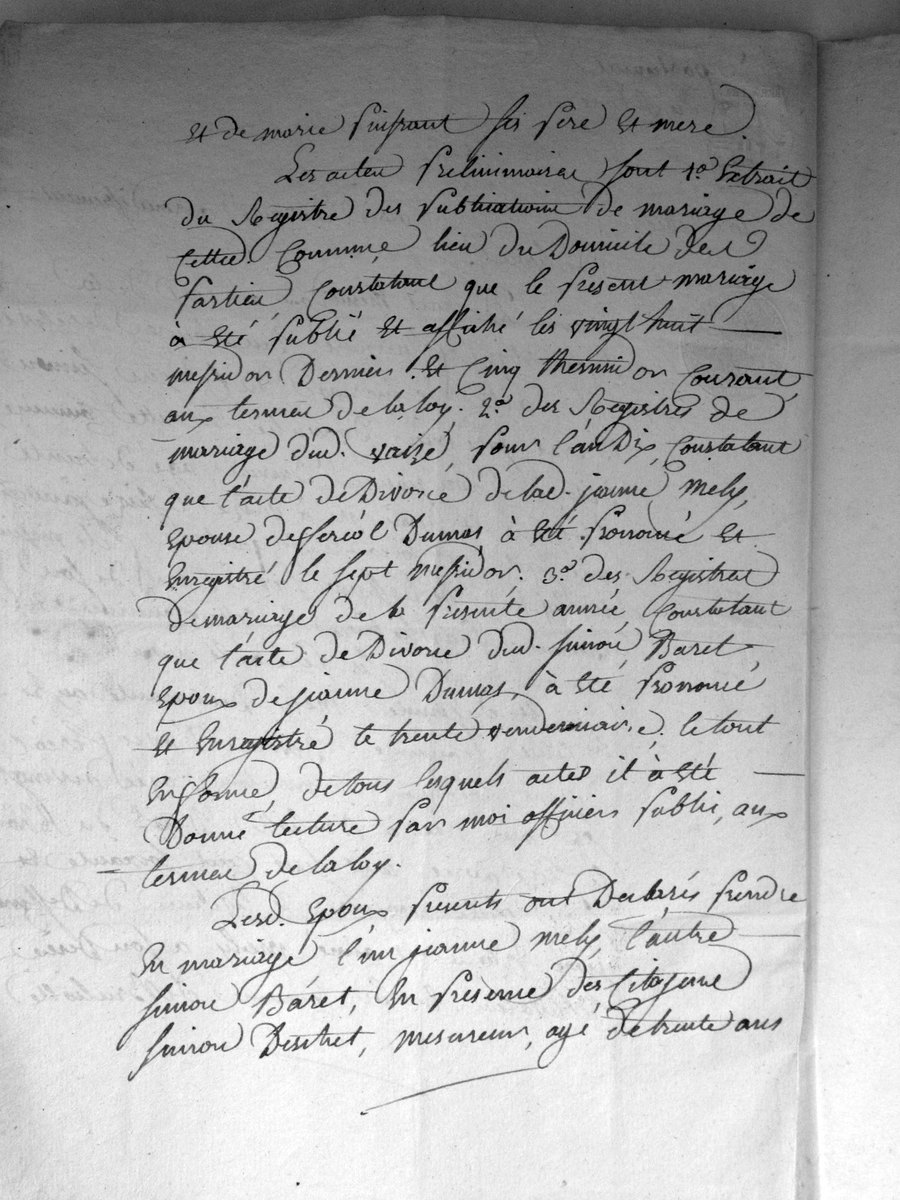 et de marie puissant ses pere et mere.
Les actes preliminaires sont 1º. Extrait
du Registre des publications de mariage de
cette Commune lieu du Domicile des
parties, Constatant que le present mariage
à été publié et affiché les vingt huit
messidor Dernier et Cinq thermidor Courant
aux termes de la loy. 2º. des Registres de
mariage dud. vaise, pour l'an Dix, Constatant
que l'acte de Divorce de lad. jeanne mely,
Epouse de ferréol Dumas à été prononcé et
Enregistré le sept messidor. 3º. des Registres
de mariage de la presente année Constatant
que l'acte de Divorce dud. simon Baret
Epoux de jeanne Dumas, à été prononcé
et Enregistré le trente vendemiaire, le tout
En forme, de tous lesquels actes il à été
Donné lecture par moi officier public, aux
termes de la loy.
Lesd. Epoux presents ont Declarés prendre
En mariage l'un jeanne mely, l'autre
simon Baret, En presence des Citoyens
simon, mesureur, agé de trente ans